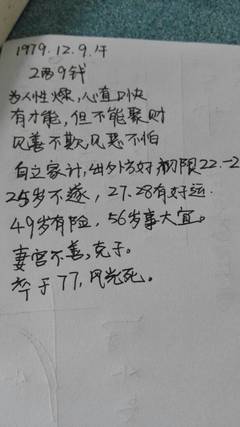 1979.12.9.午
2两9钱
为人性燥,心直口快
有才能,但不能聚财
见善不欺见恶不怕
自立家计,出外方好初限22.-2
25岁不遂,27.28有好运.
49岁有险,56岁事大宜。
妻宫不善,克子。
卒于77,风光死。